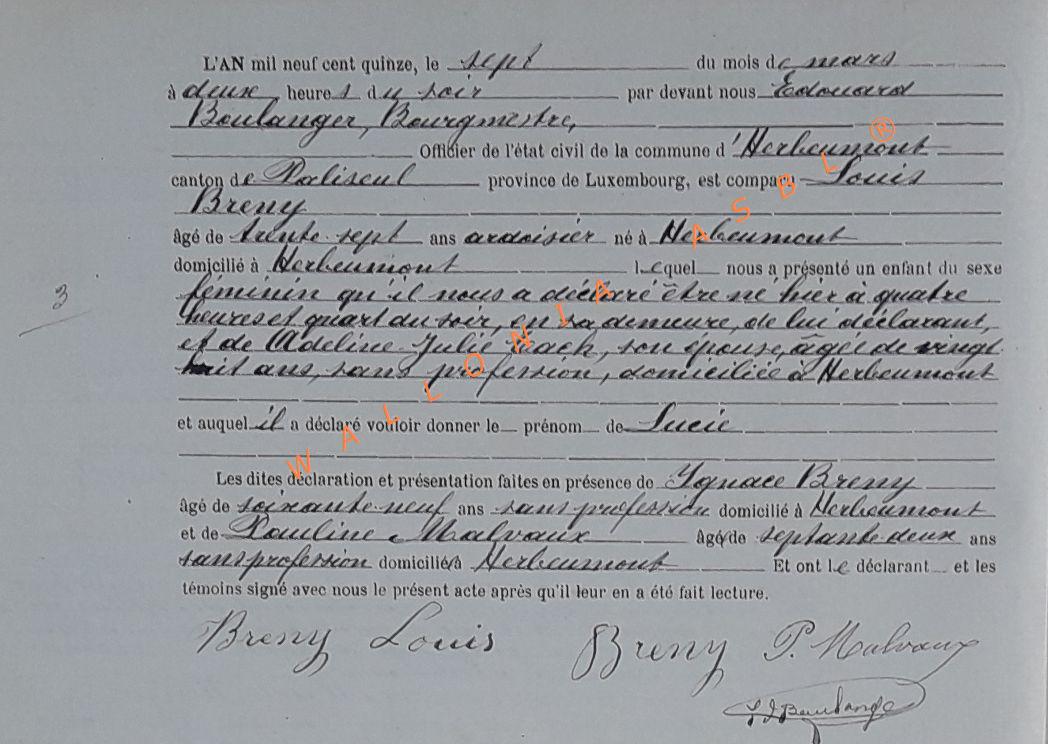 L'AN mil neuf cent quinze, le sept du mois de mars
à deux heures du soir par devant nous Edouard
Boulanger, Bourgmestre,
Officier de l'état civil de la commune d'Herbeumont
canton de Paliseul province de Luxembourg, est comparu Louis
Breny
âgé de trente-sept ans ardoisier né à Herbeumont
domicilié à Herbeumont lequel nous a présenté un enfant du sexe
3
féminin qu'il nous a déclaré être né hier à quatre
heures et quart du soir, en sa demeure, de lui déclarant,
et de Adeline Julie, son épouse, âgée de vingt
huit ans, sans profession, domiciliée à Herbeumont
et auquel il a déclaré vouloir donner le prénom de Lucie
Les dites déclaration et présentation faites en présence de Ignace Breny
âgé de soixante-neuf ans sans profession domicilié à Herbeumont
et de Pauline Malvaux âgé de septante deux ans
sans profession domicilié à Herbeumont Et ont le déclarant et les
témoins signé avec nous le présent acte après qu'il leur en a été fait lecture.
Breny Louis Breny P. Malvaux
Boulanger
WALLONIA ASBL ®